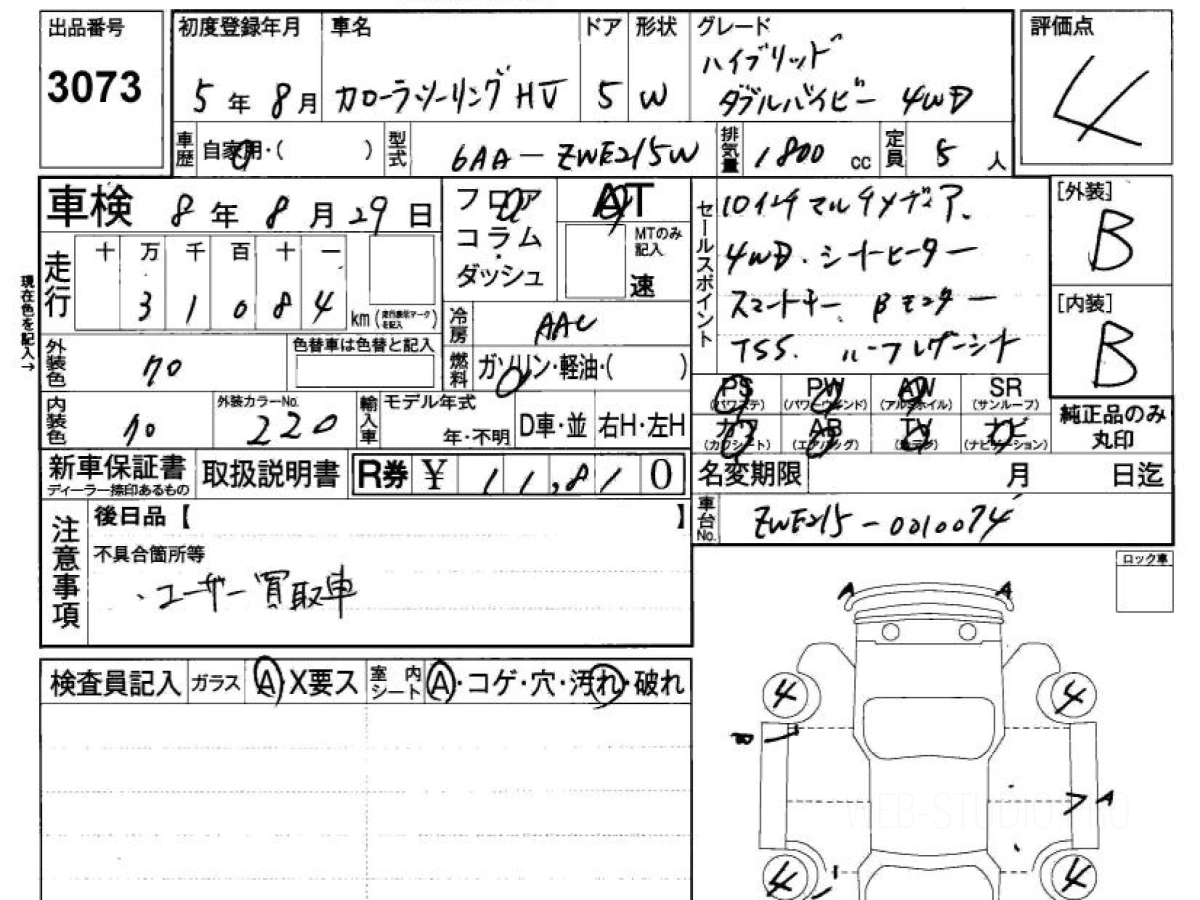 出品番号
3073
初度登録年月
5年8月
車名
カローラツーリングHV
ドア
5
形状
W
グレード
ハイブリッド
ダブルバイビー 4WD
評価点
4
車歴
自家用・( )
型式
6AA-ZWE215W
排気量
1800 cc
定員
5人
車検
8年8月29日
フロア
コラム
ダッシュ
AT
MTのみ記入
速
セールスポイント
10インチマルチメディア.
4WD.シートヒーター
スマートキー Bモニター
TSS. ルーフレゲーシナ
[外装]
B
[内装]
B
現在色を記入→
走行
十 万 千 百 十 一
3 1 0 8 4
km
(走行表示マークを記入)
冷房
AAC
外装色
クロ
色替車は色替と記入
燃料
ガソリン・軽油・( )
内装色
クロ
外装カラーNo.
220
輸入車
モデル年式
年・不明
D車・並
右H・左H
PS
(パワステ)
PW
(パワーウインド)
AW
(アルミホイル)
SR
(サンルーフ)
カワ
(カワシート)
AB
(エアバッグ)
TV
ナビ
(ナビゲーション)
純正品のみ
丸印
新車保証書
ディーラー捺印あるもの
取扱説明書
R券 ¥ 11,810
名変期限
月 日迄
車台No.
ZWE215-0010074
注意事項
後日品【 】
不具合箇所等
・ユーザー買取車
ロック車
検査員記入
ガラス
A X要ス
室内
シート
A・コゲ・穴・汚れ・破れ
A A
4 4
B
A
4 4
WEB-STUDIO PRO